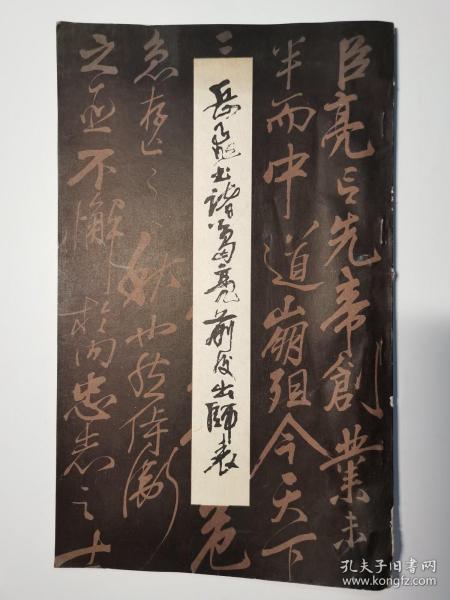 臣亮言先帝創業未
半而中道崩殂今天下
三
危
岳飛書諸葛亮前後出師表
急存亡之秋也然侍衛
之臣不懈於內忠志之士
孔夫子旧书网
www.kongfz.com